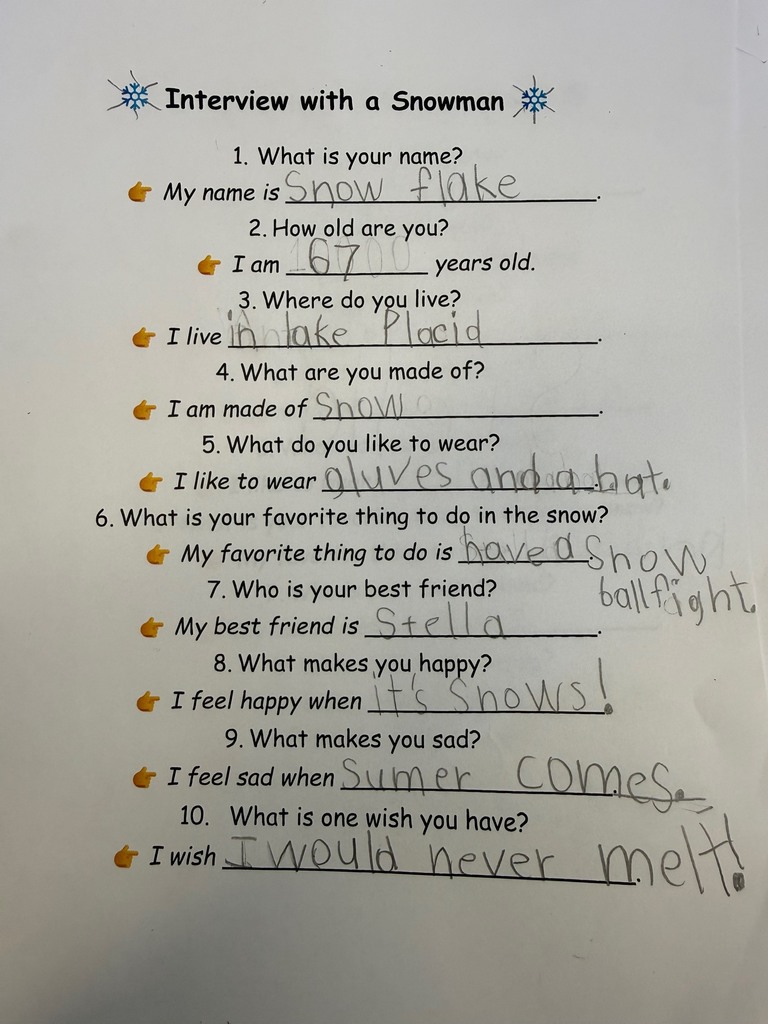 Interview with a Snowman
1. What is your name?
My name is Snow flake.
2. How old are you?
I am 67 years old.
3. Where do you live?
I live in lake Placid.
4. What are you made of?
I am made of Snow.
5. What do you like to wear?
I like to wear gluves and a hat.
6. What is your favorite thing to do in the snow?
My favorite thing to do is have a Snow
ball fight.
7. Who is your best friend?
My best friend is Stella.
8. What makes you happy?
I feel happy when it's Snows!
9. What makes you sad?
I feel sad when Sumer comes.
10. What is one wish you have?
I wish I would never melt!